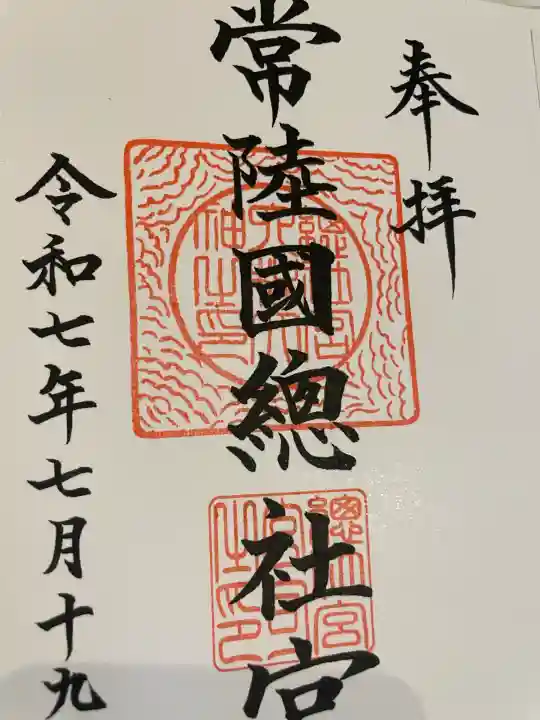 奉拝
常陸國總社宮
令和七年七月十九